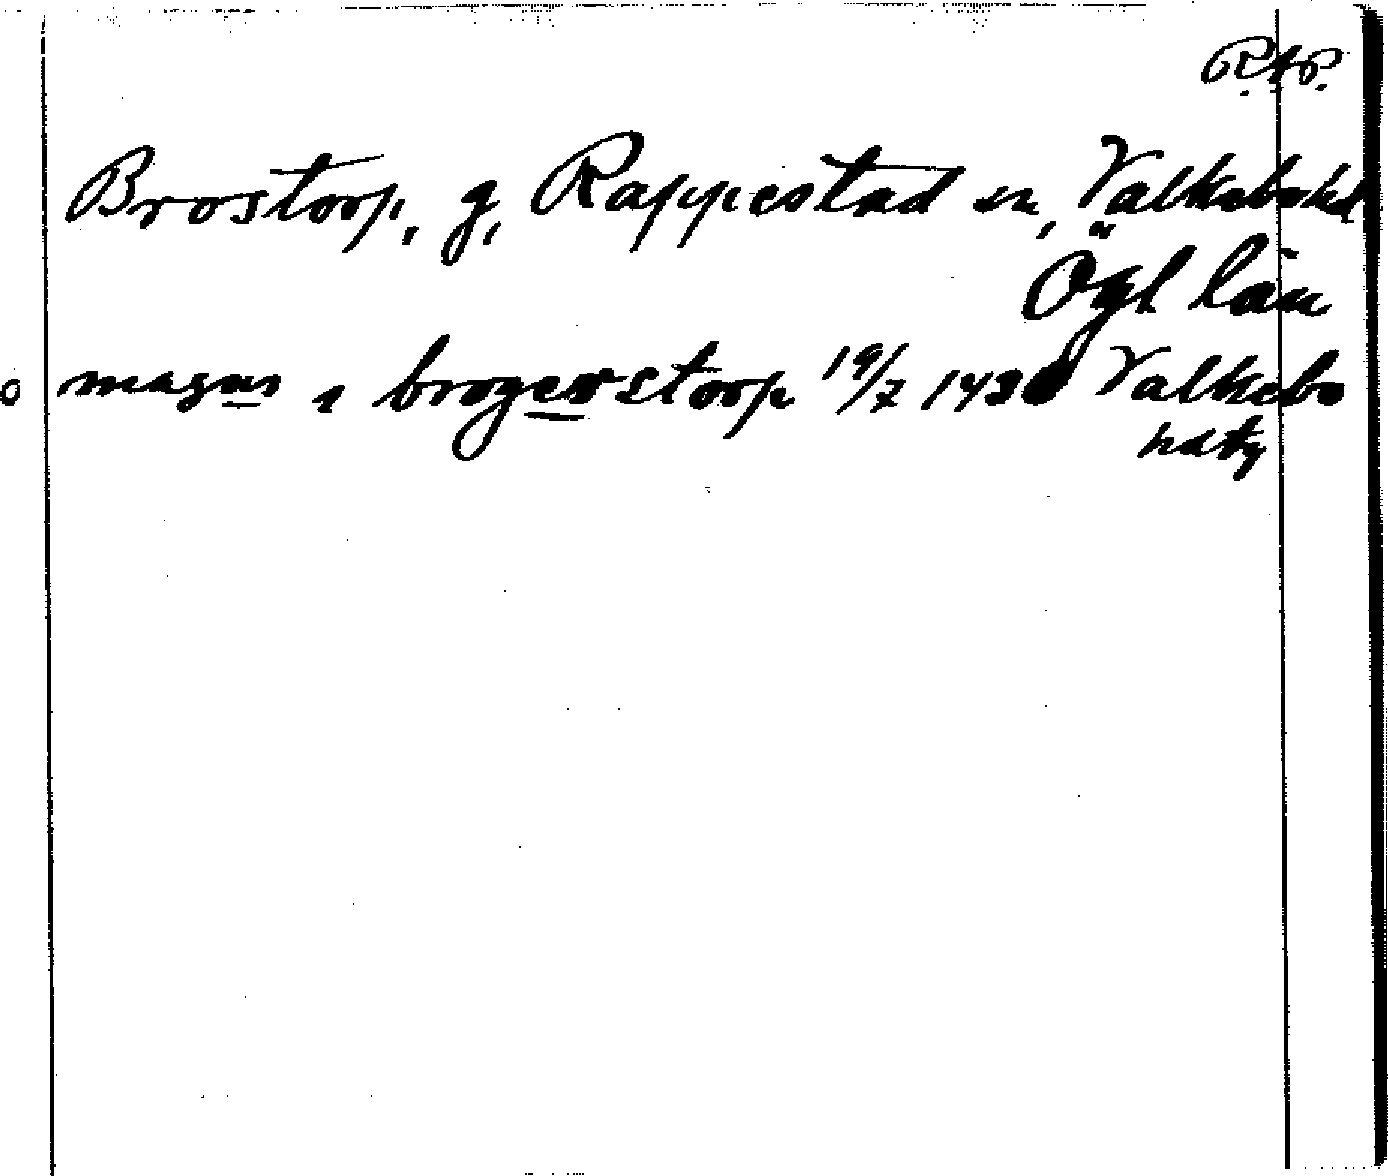 R.A.P.
Brostorp, g, Rappestad sn, Valkebohd
Ögl län
magnus i brogerstorp 19/7 Valkebo
hdtg